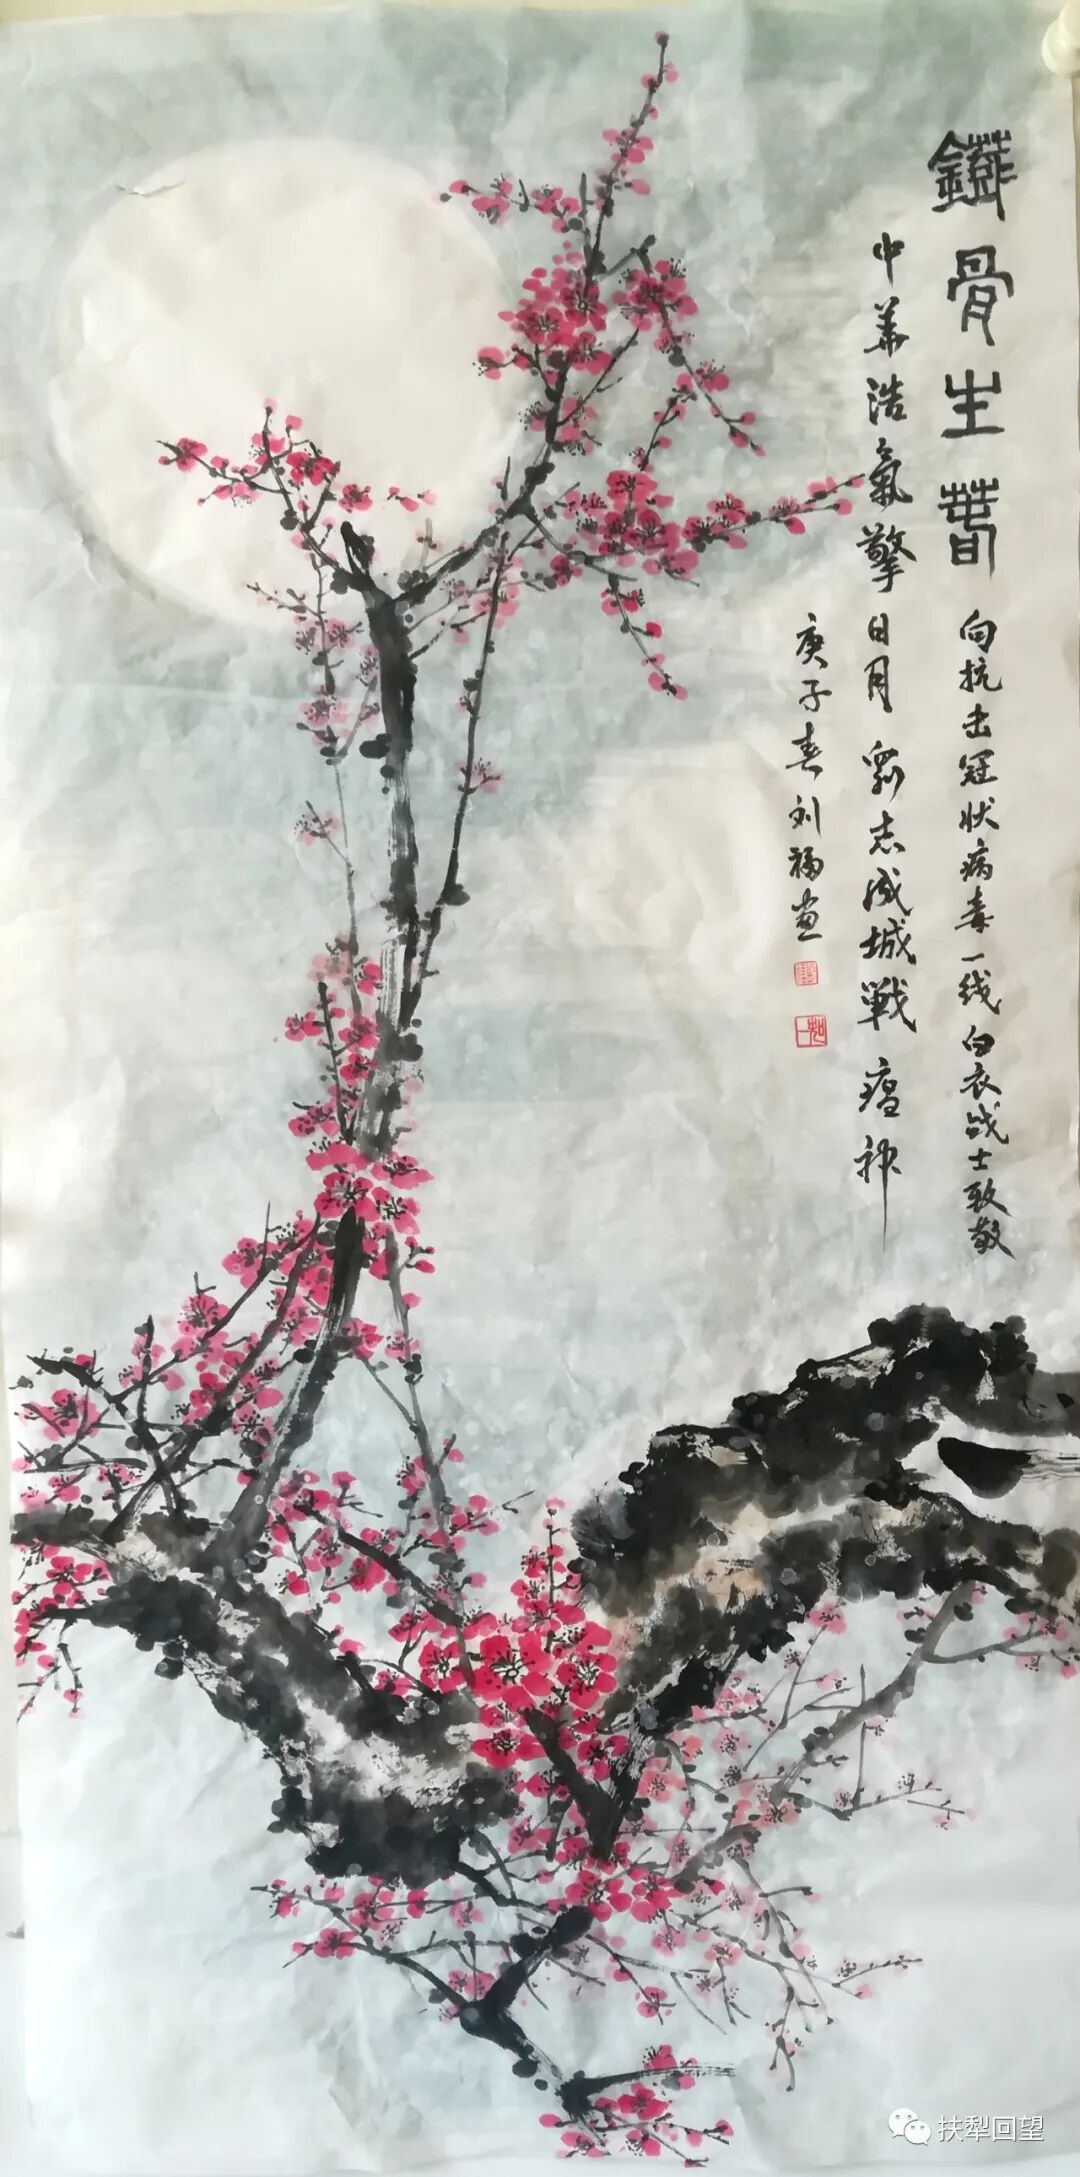 鐵骨生春
向抗击冠状病毒一线白衣战士致敬
中華浩氣擎日月 眾志成城戰瘟神
庚子春刘福画
扶犁回望